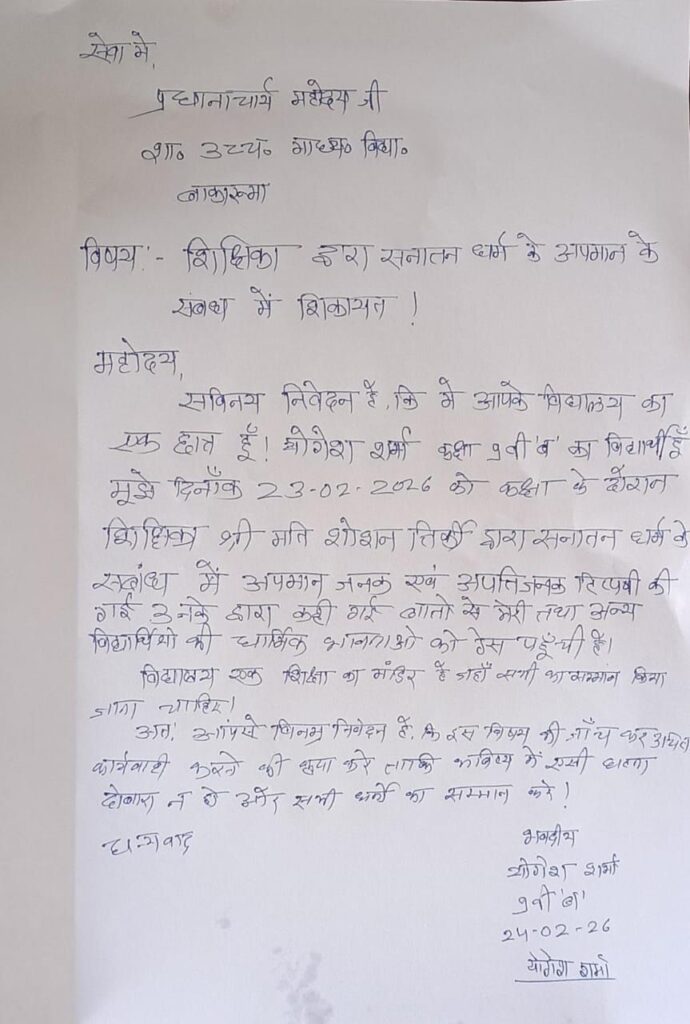 सेवा मे,
प्रधानाचार्य महोदय जी
शा० उच्च० माध्य० विद्या०
नाकारूमा
विषय:- शिक्षिका द्वारा सनातन धर्म के अपमान के
संबध में शिकायत !
महोदय,
सविनय निवेदन है, कि मे आपके विद्यालय का
एक छात्र हूँ! योगेश शर्मा कक्षा 9वी 'ब' का विद्यार्थी हूँ
मूझे दिनाँक 23-02-2026 को कक्षा के दौरान
शिक्षिका श्री मति शोशन तिर्की द्वारा सनातन धर्म के
सबांध में अपमान जनक एवं अपतिजनक टिप्पणी की
गई उनके द्वारा कही गई बातो से मेरी तथा अन्य
विद्यार्थियो की धार्मिक भावनाओ को ठेस पहूँची है।
विद्यालय एक शिक्षा का मंदिर है जहाँ सभी का सम्मान किया
जाना चाहिए।
अत: आपसे विनम्र निवेदन है, कि इस विषय की जाँच कर उचित
कार्यवाही करने की कृपा करे ताकि भविष्य में एसी घटना
दोबारा न हो और सभी धर्मो का सम्मान करे!
धन्यवाद
भवदीय
योगेश शर्मा
9वी 'ब'
24-02-26
योगेश शर्मा